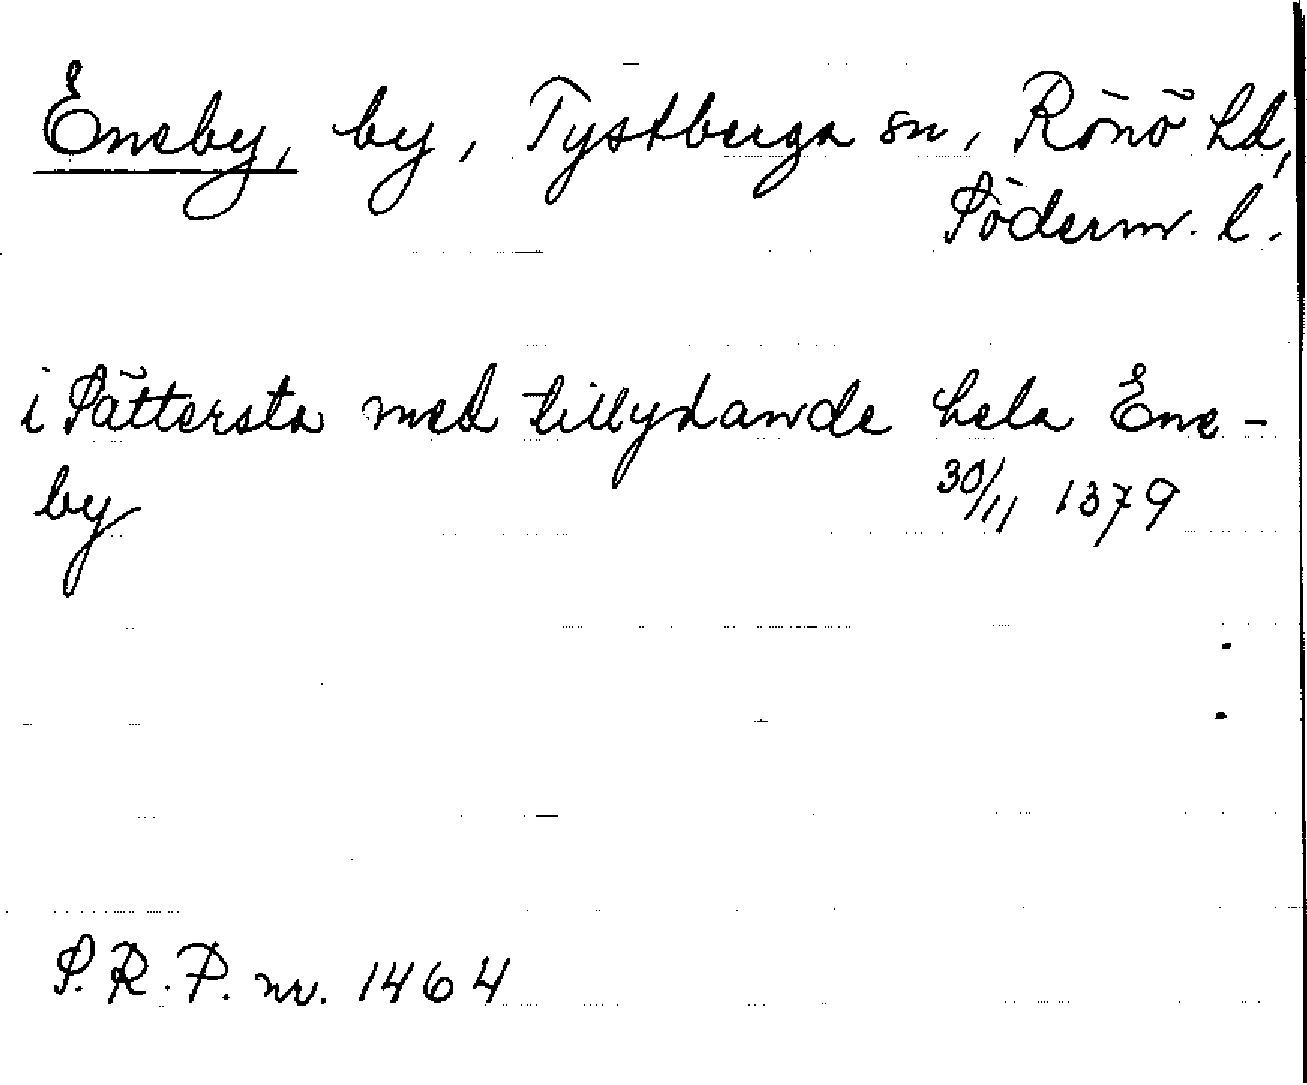 Eneby, by, Tystberga sn, Rönö hd,
Söderm. l.
i Sättersta med tillydande hela Ene-
by 30/11 1379
S.R.P. nr. 1464